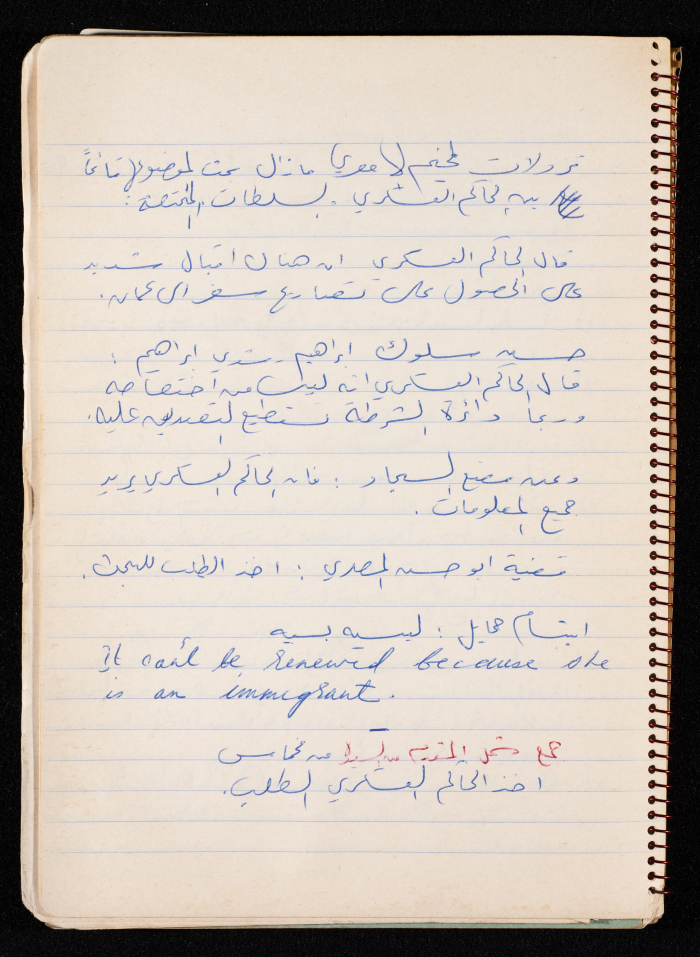 لمخيم ( ) مازال بحث الموضوع قائماً
بين الحاكم العسكري والسلطات المختصة :
قال الحاكم العسكري ان هناك اقبال شديد
على الحصول على تصاريح سفر الى عمان .
حسين سلوك ابراهيم - ابراهيم :
قال الحاكم العسكري انه ليس من اختصاصه
وربما دائرة الشرطة تستطيع التصديق عليه .
وعن مصنع السجاد : فان الحاكم العسكري يريد
جميع المعلومات .
قضية ابو حسين المصري : اخذ الطلب للبحث .
ابتسام : ليسيه بسيه
It can't be renewed because she
is an immigrant.
جمع شمل من
اخذ الحاكم العسكري الطلب .